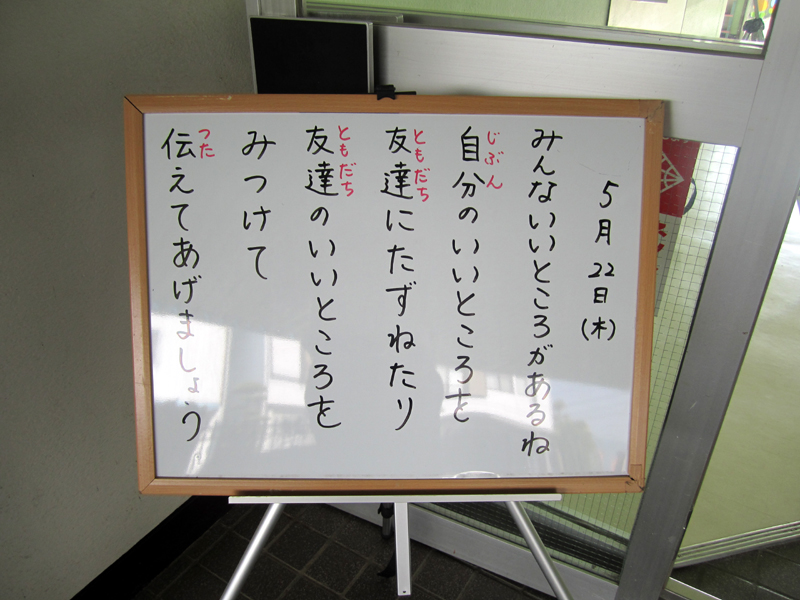 5月22日(木)
みんないいところがあるね
じぶん
自分のいいところを
ともだち
友達にたずねたり
ともだち
友達のいいところを
みつけて
つた
伝えてあげましょう